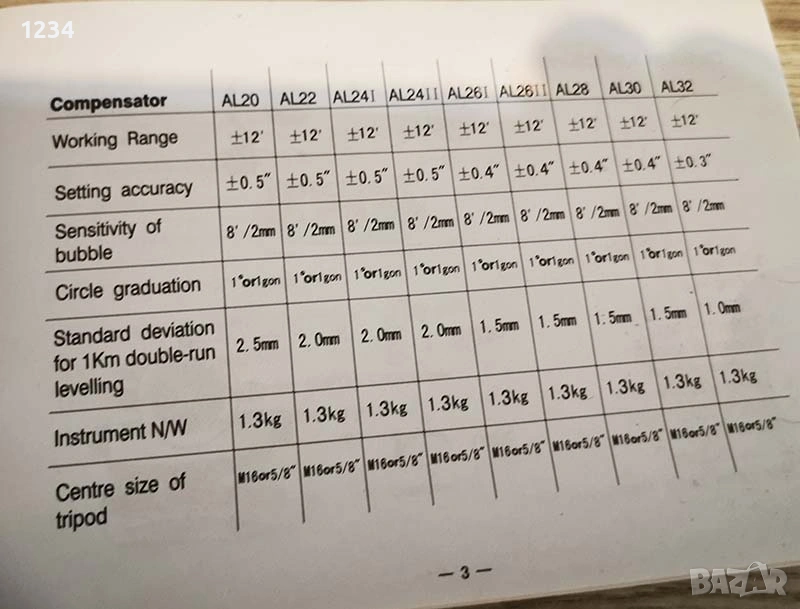 1234
Compensator AL20 AL22 AL24I AL24II AL26I AL26II AL28 AL30 AL32
Working Range ±12′ ±12′ ±12′ ±12′ ±12′ ±12′ ±12′ ±12′ ±12′
Setting accuracy ±0.5″ ±0.5″ ±0.5″ ±0.5″ ±0.4″ ±0.4″ ±0.4″ ±0.4″ ±0.3″
Sensitivity of
bubble 8′/2mm 8′/2mm 8′/2mm 8′/2mm 8′/2mm 8′/2mm 8′/2mm 8′/2mm 8′/2mm
Circle graduation 1°or1gon 1°or1gon 1°or1gon 1°or1gon 1°or1gon 1°or1gon 1°or1gon 1°or1gon 1°or1gon
Standard deviation
for 1Km double-run 2.5mm 2.0mm 2.0mm 2.0mm 1.5mm 1.5mm 1.5mm 1.5mm 1.0mm
levelling
Instrument N/W 1.3kg 1.3kg 1.3kg 1.3kg 1.3kg 1.3kg 1.3kg 1.3kg 1.3kg
Centre size of M16or5/8″ M16or5/8″ M16or5/8″ M16or5/8″ M16or5/8″ M16or5/8″ M16or5/8″ M16or5/8″ M16or5/8″
tripod
— 3 —
BAZAR